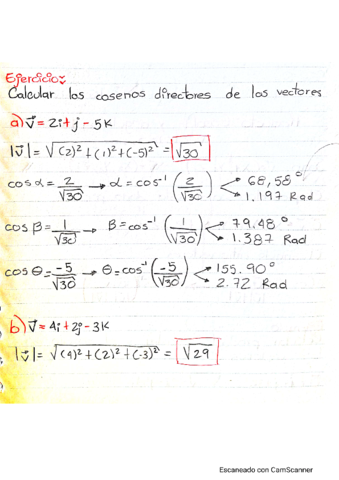 Ejercicio:
Calcular los cosenos directores de los vectores
a) v⃗ = 2i + j - 5K
|v⃗| = √(2)² + (1)² + (-5)² = √30
cos α = 2/√30 → α = cos⁻¹ (2/√30) 68,58° 1.197 Rad
cos β = 1/√30 → β = cos⁻¹ (1/√30) 79.48° 1.387 Rad
cos θ = -5/√30 → θ = cos⁻¹ (-5/√30) 155.90° 2.72 Rad
b) v⃗ = 4i + 2j - 3K
|v⃗| = √(4)² + (2)² + (-3)² = √29
Escaneado con CamScanner